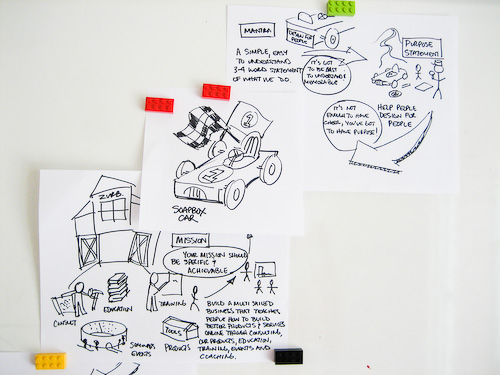 MANTRA
DESIGN FOR
PEOPLE
A SIMPLE, EASY
TO UNDERSTAND
3-4 WORD STATEMENT
OF WHAT WE DO.
IT'S GOT
TO BE FAST
TO UNDERSTAND
MEMORABLE
PURPOSE
STATEMENT
IT'S NOT
ENOUGH TO HAVE
YOU'VE GOT
TO HAVE PURPOSE!
HELP PEOPLE
DESIGN FOR
PEOPLE
2
27
SOAPBOX
CAR
ZURB
MISSION
YOUR MISSION SHOULD
BE SPECIFIC &
ACHIEVABLE
CONSULT
EDUCATION
TRAINING
EVENTS
TOOLS
PRODUCTS
BUILD A MULTI SKILLED
BUSINESS THAT TEACHES
PEOPLE HOW TO BUILD
BETTER PRODUCTS & SERVICES
ONLINE THROUGH CONSULTING,
OUR PRODUCTS, EDUCATION,
TRAINING, EVENTS AND
COACHING.